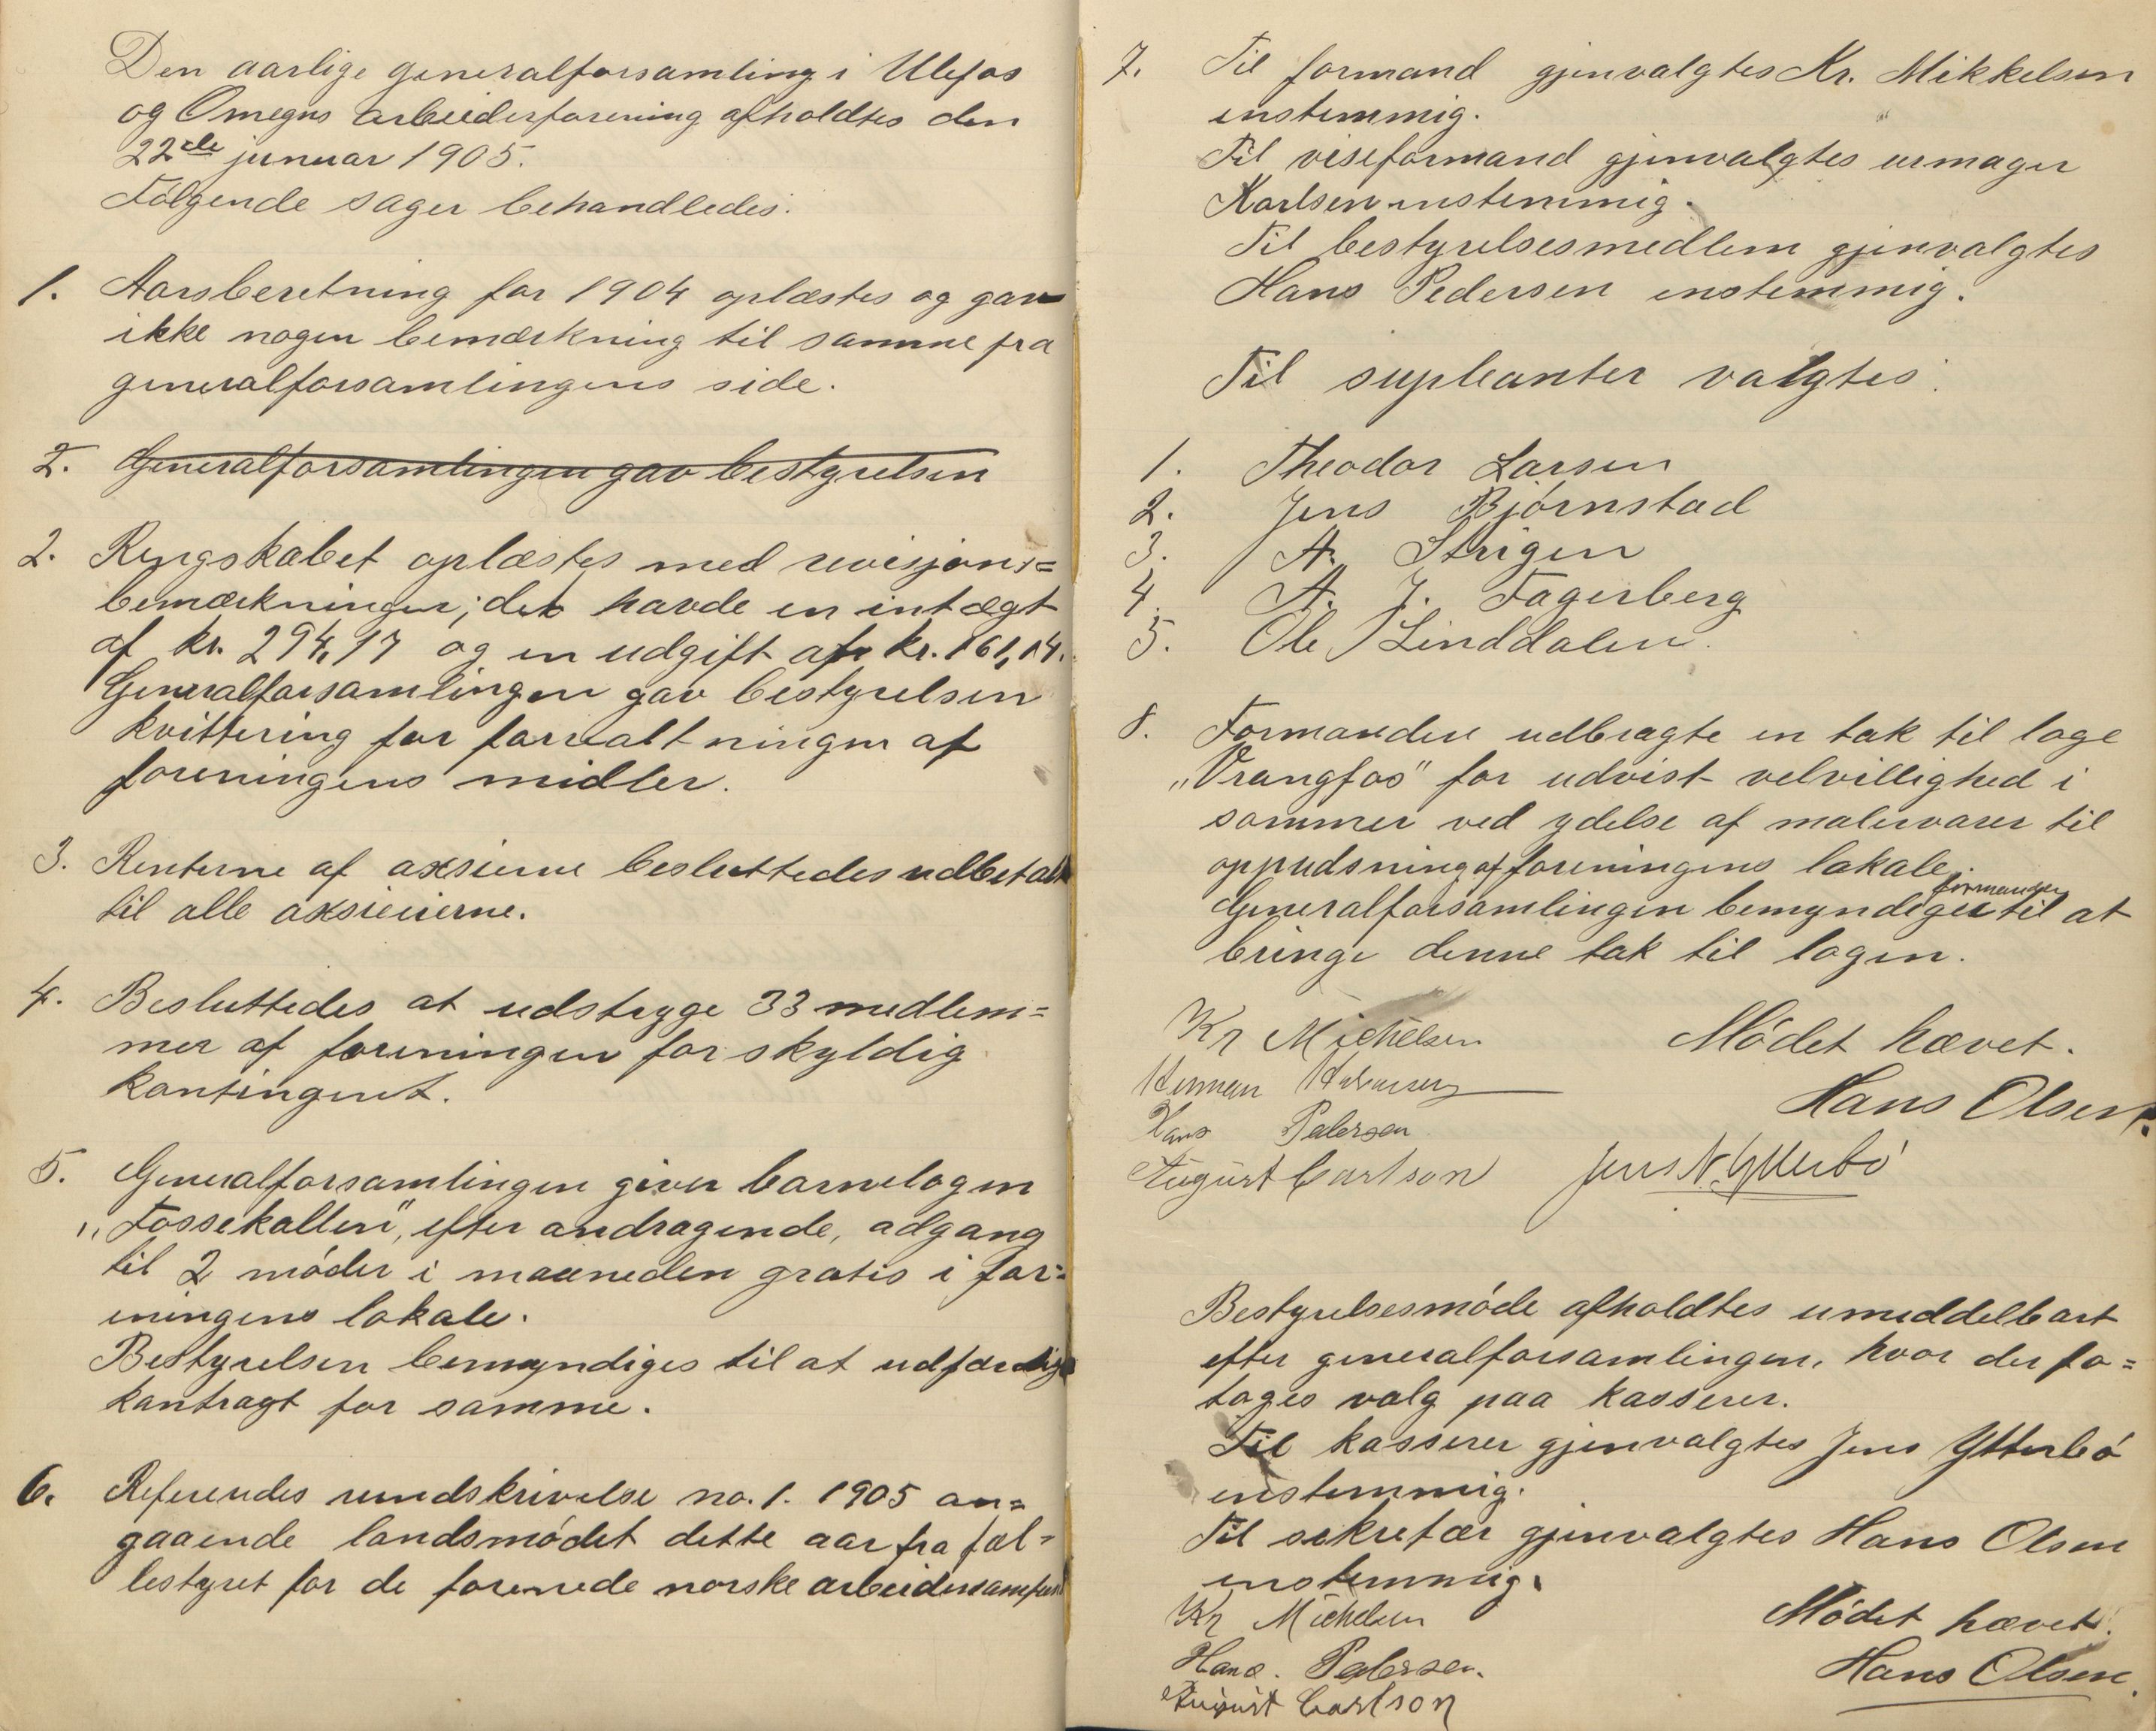 Den aarlige generalforsamling i Ulefos
og Omegns arbeiderforening afholdtes den
22de januar 1905.
Følgende sager behandledes:
1. Aarsberetning for 1904 oplæstes og gav
ikke nogen bemærkning til samme fra
generalforsamlingens side.
2. Generalforsamlingen gav bestyrelsen
2. Regnskabet oplæstes med revisjons=
bemærkninger; det havde en intægt
af kr. 294,17 og en udgift af kr. 161,14.
Generalforsamlingen gav bestyrelsen
kvittering for forvaltningen af
foreningens midler.
3. Renterne af axsierne besluttedes udbetalt
til alle axsieierne.
4. Besluttedes at udstryge 33 medlem=
mer af foreningen for skyldig
kontingent.
5. Generalforsamlingen giver barnelogen
„Fossekallen", efter andragende, adgang
til 2 møder i maaneden gratis i for=
eningens lokale.
Bestyrelsen bemyndiges til at udfærdige
kontragt for samme.
6. Refereredes rundskrivelse no. 1. 1905 an=
gaaende landsmødet dette aar fra fæl=
lestyret for de forenede norske arbeidersamfund
7. Til formand gjenvalgtes Kr. Mikkelsen
enstemmig.
Til viseformand gjenvalgtes urmager
Karlsen enstemmig.
Til bestyrelsesmedlem gjenvalgtes
Hans Pedersen enstemmig.
Til supleanter valgtes:
1. Theodor Larsen
2. Jens Bjørnstad
3. A. Strigen
4. A. J. Fagerberg
5. Ole Linddalen.
8. Formanden udbragte en tak til loge
„Vrangfos" for udvist velvillighed i
sommer ved ydelse af malervarer til
oppudsning af foreningens lokale.
formanden
Generalforsamlingen bemyndiger til at
bringe denne tak til logen.
Kr Michelsen Mødet hævet.
Herman
Hans Olsen.
Hans Pedersen
August Carlson Jens N. Ytterbø
Bestyrelsesmøde afholdtes umiddelbart
efter generalforsamlingen, hvor der fo=
toges valg paa kasserer.
Til kasserer gjenvalgtes Jens Ytterbø
enstemmig.
Til sekretær gjenvalgtes Hans Olsen
enstemmig.
Kr Michelsen Mødet hævet.
Hans. Pedersen. Hans Olsen.
August Carlson